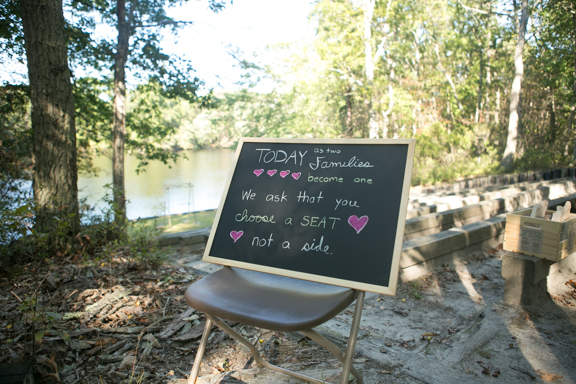 TODAY as two Families
become one
We ask that you
choose a SEAT
not a side.